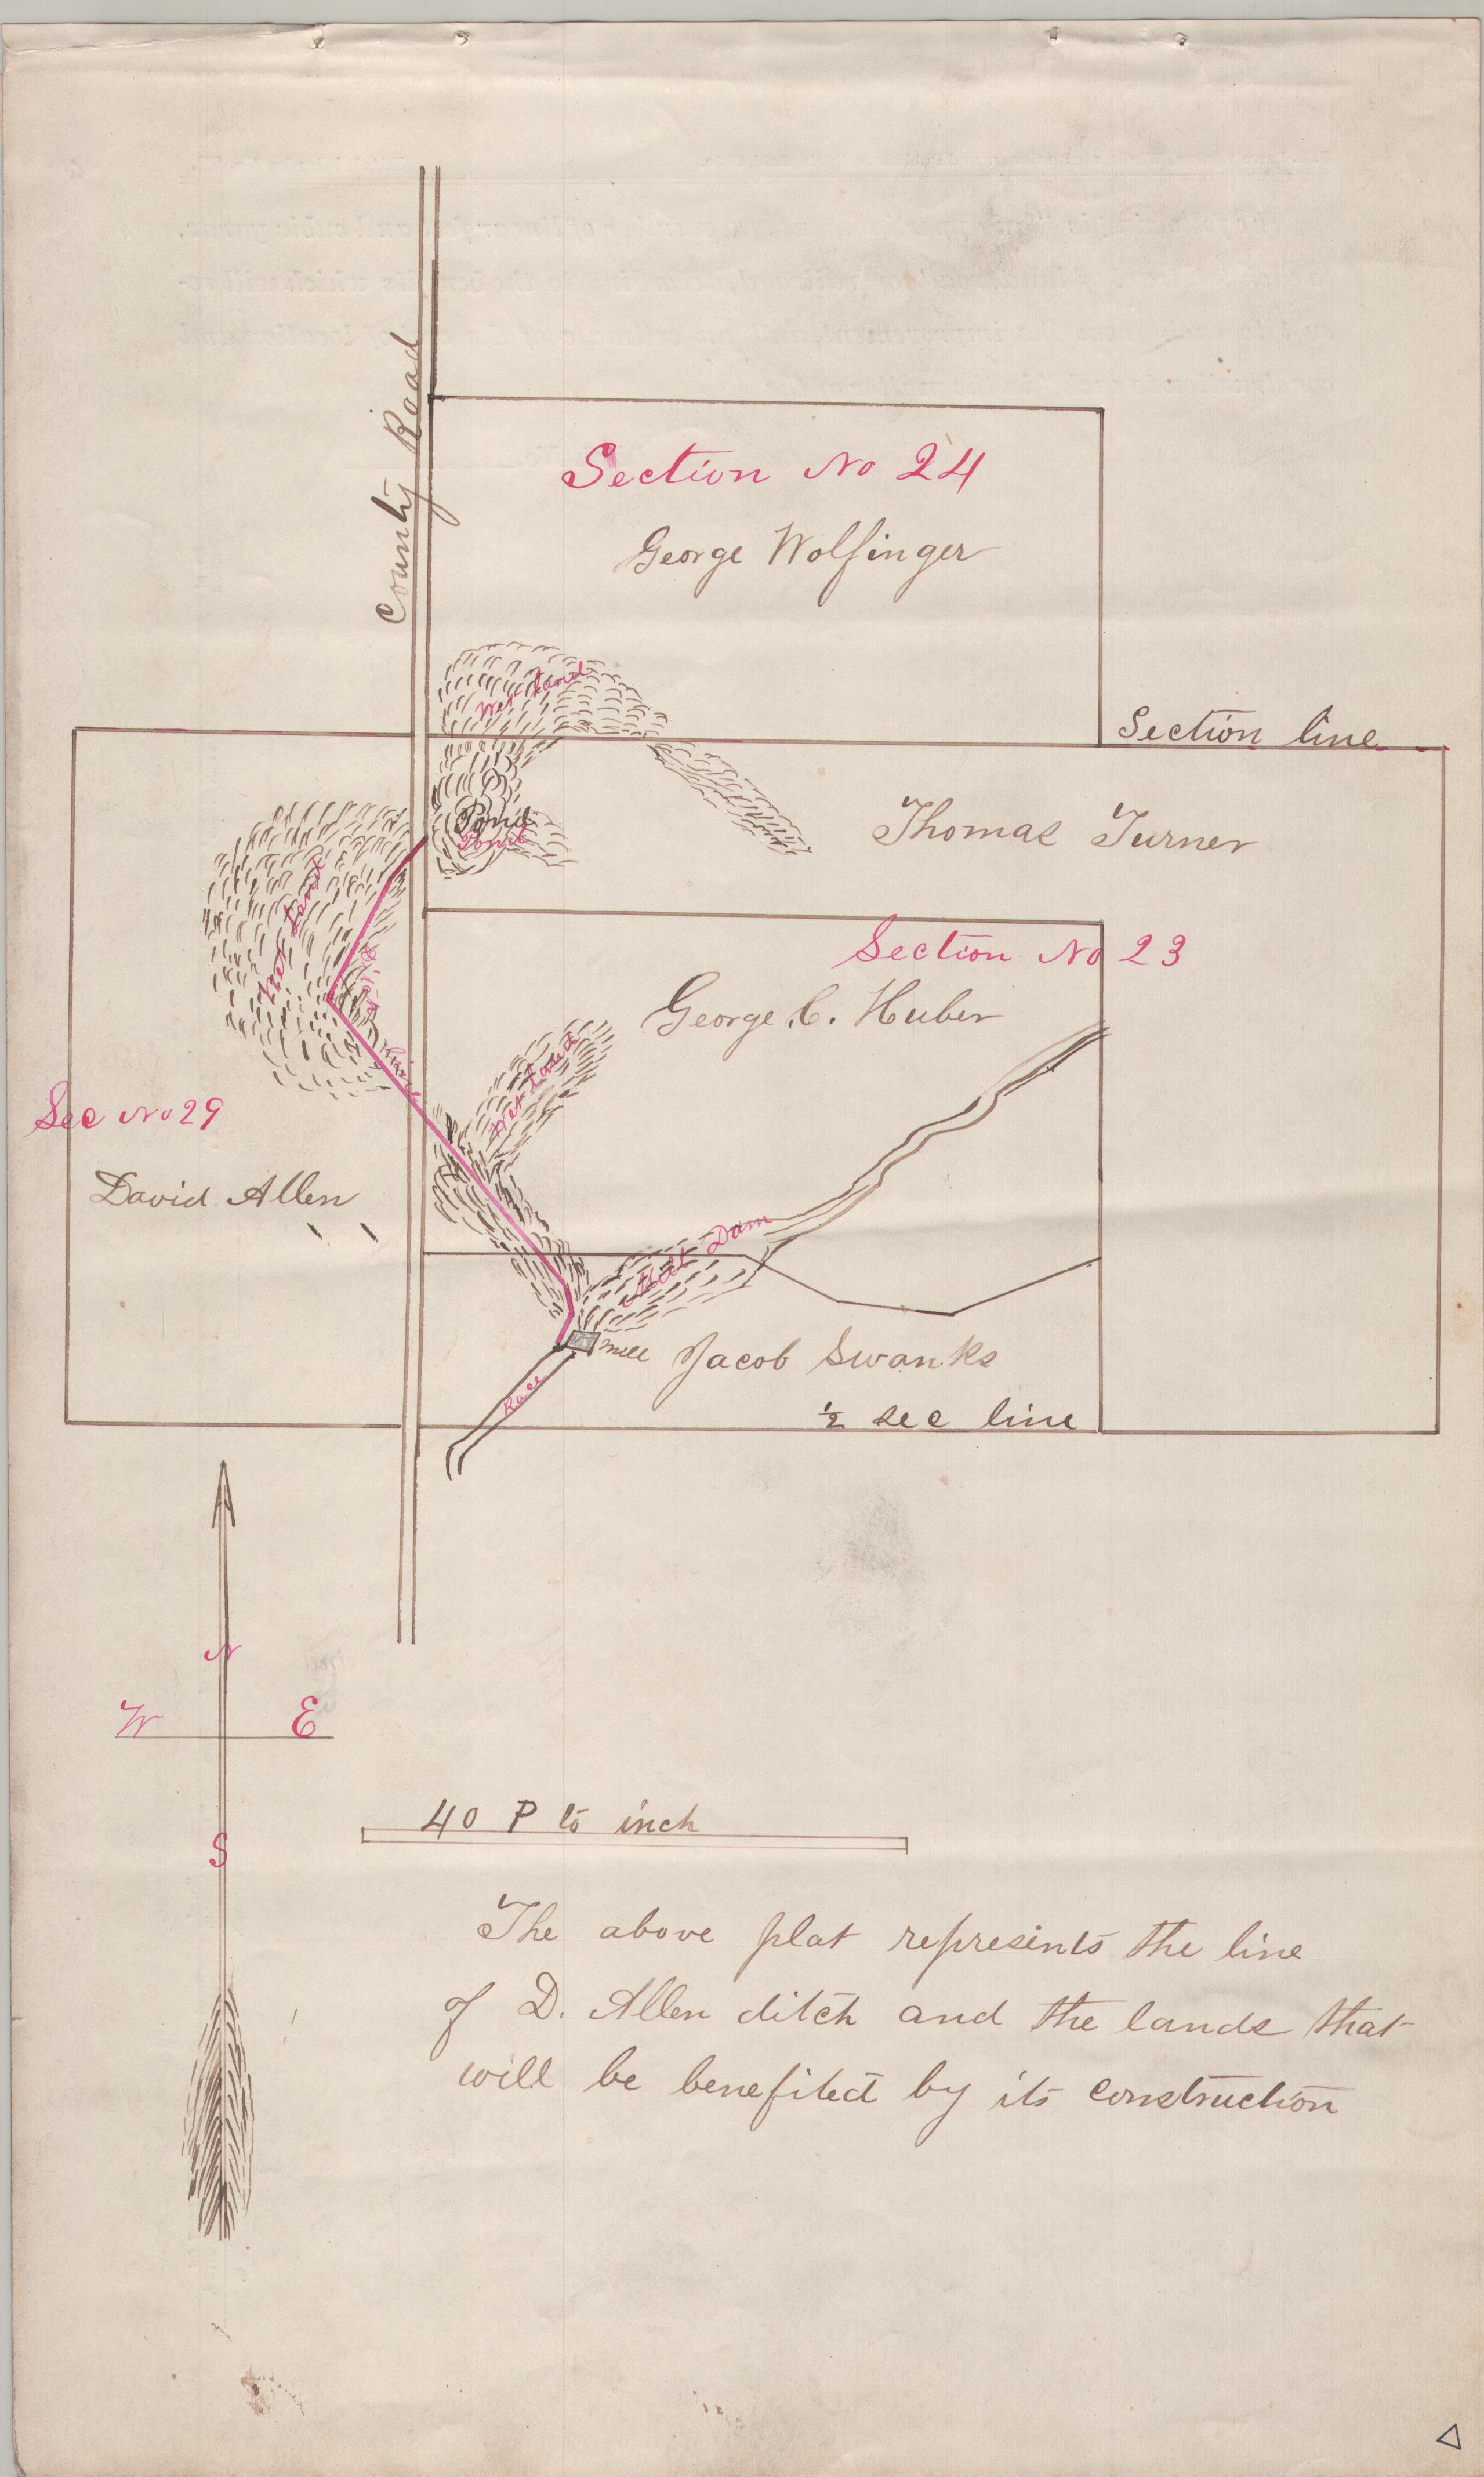 County Road
Section No 24
George Wolfinger
Wet Land
Section line
Pond
Pond
Thomas Turner
Wet Land
Section No 23
George C. Huber
Wet Land
Sec No 29
David Allen
Mill Dam
mill
Jacob Swanks
Race
½ sec line
N
W E
S
40 P to inch
The above plat represents the line
of D. Allen ditch and the lands that
will be benefited by its construction